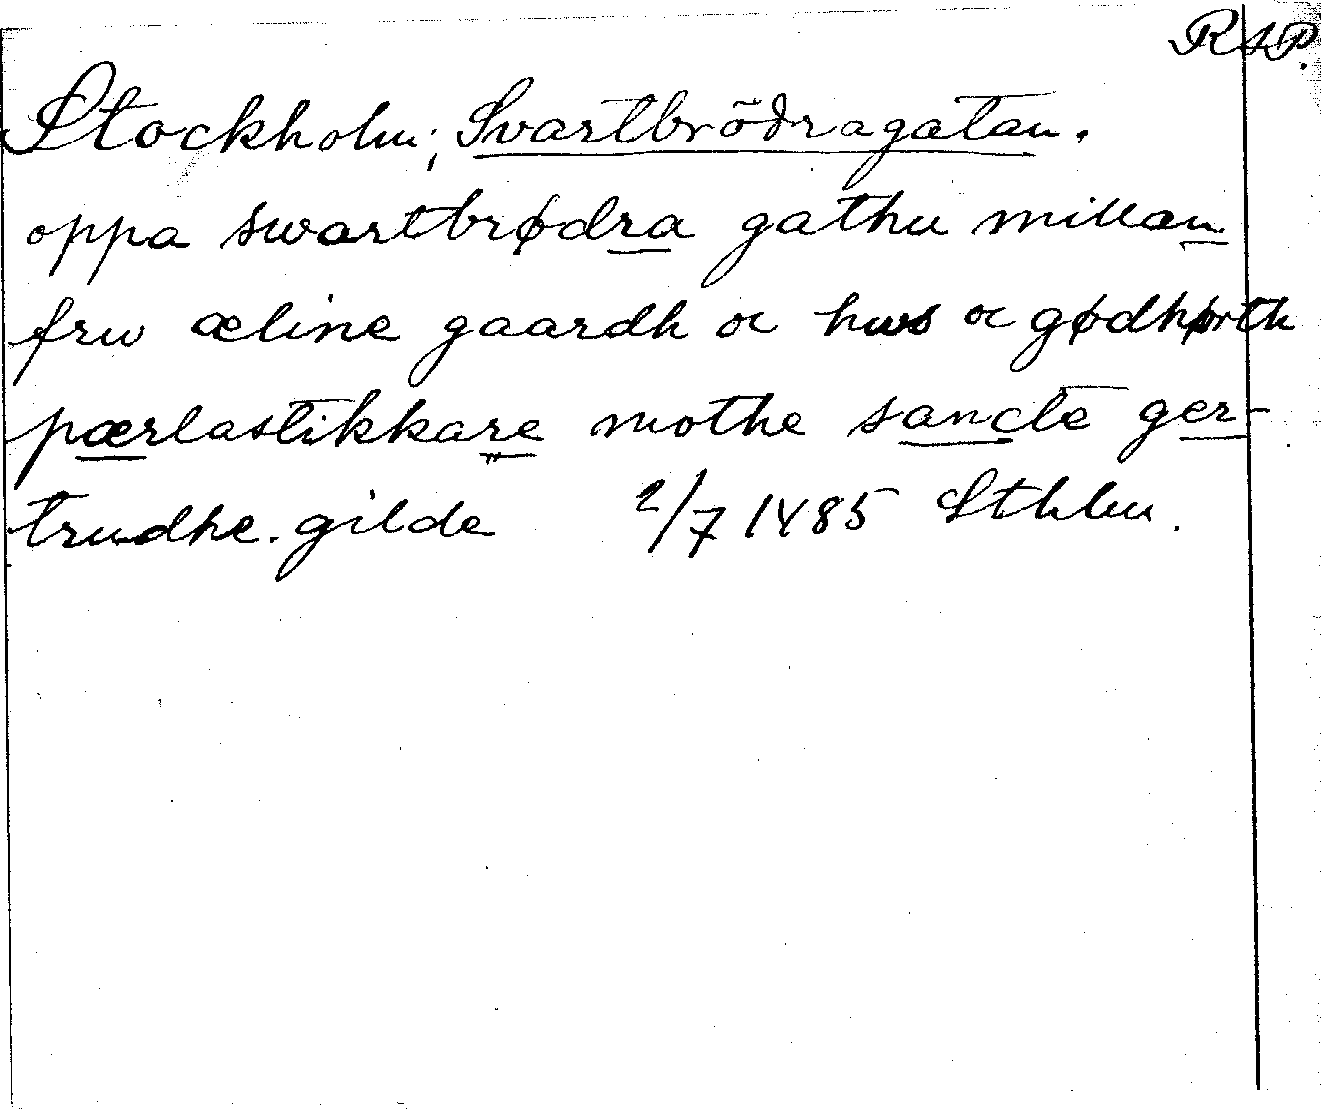 RAP.
Stockholm; Svartbrödragatan.
oppa swartbrødra gathu millan
frw æline gaardh oc hws oc gødhørth
pærlastikkare mothe sancte ger-
trudhe. gilde 2/7 1485 Sthlm.